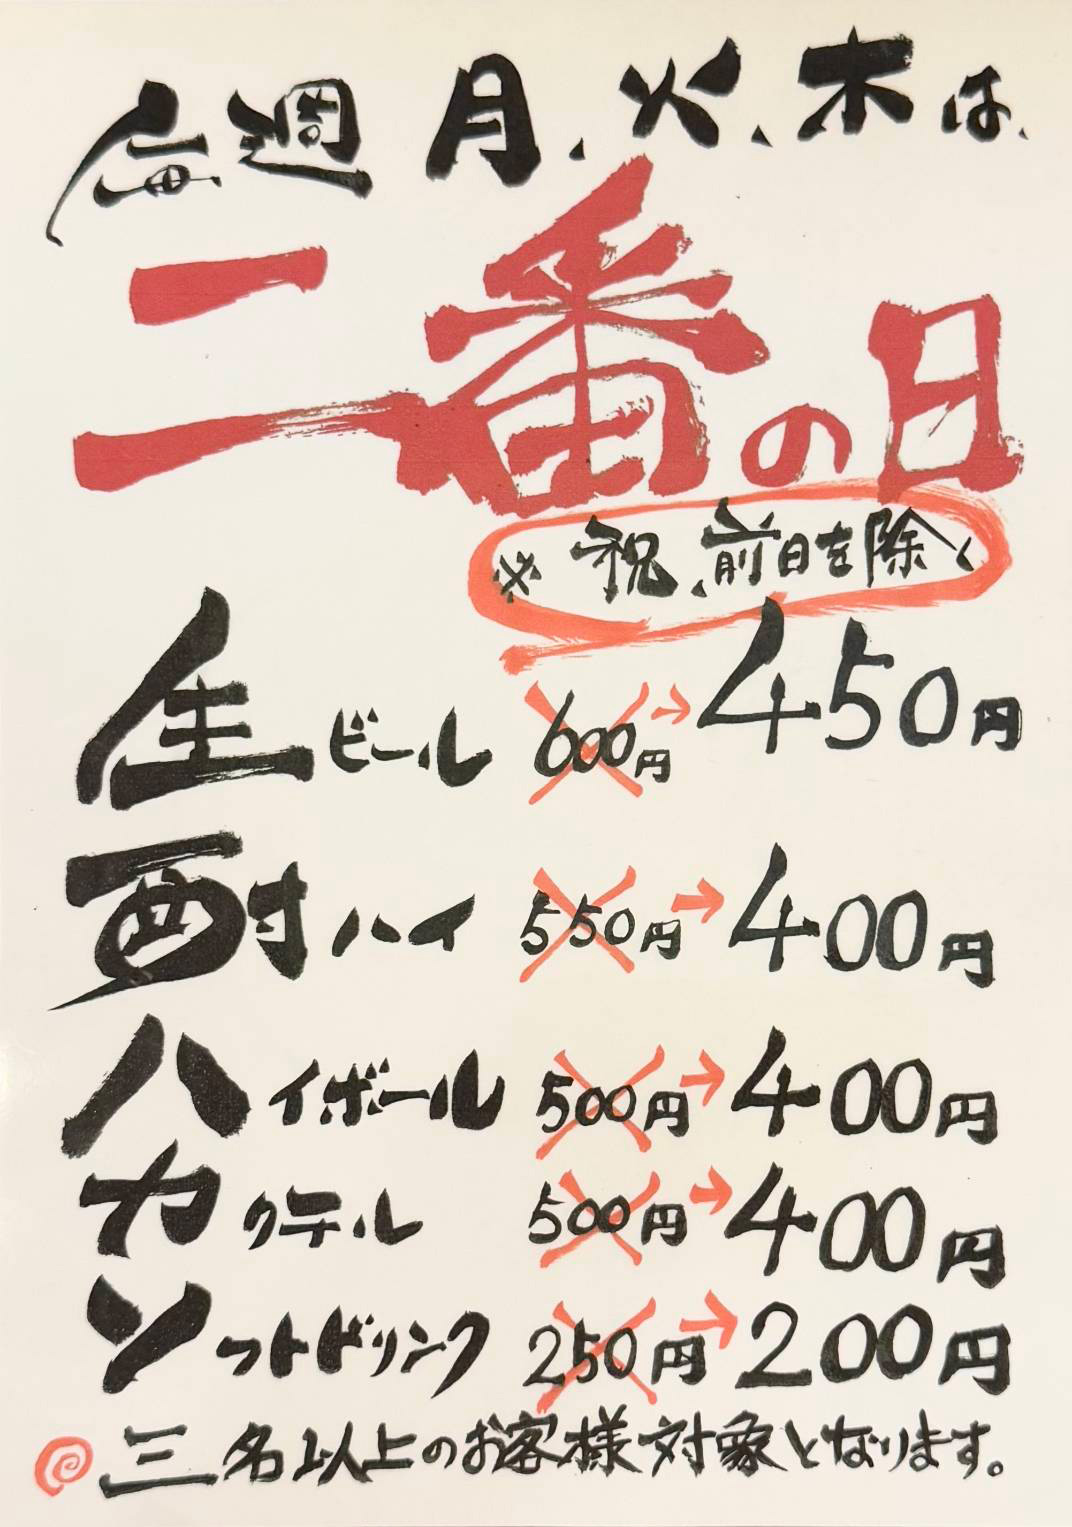 毎週 月、火、木は、
二番の日
※祝、前日を除く
生ビール 600円→450円
酎ハイ 550円→400円
ハイボール 500円→400円
カクテル 500円→400円
ソフトドリンク 250円→200円
三名以上のお客様対象となります。